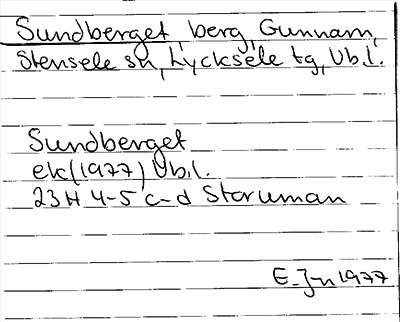 Sundberget, berg, Gunnarn,
Stensele sn, Lycksele tg, Vb.l.
Sundberget
ek (1977) Vb.l.
23H 4-5 c-d Storuman
E. Jn 1977